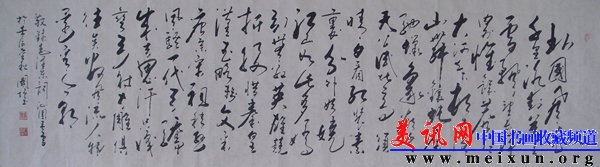 北国风光
千里冰封万里
雪飘望长城内
外惟馀莽莽
大河上下顿失滔滔
山舞银蛇原
驰蜡象欲与
天公试比高须
晴日看红装素
裹分外妖娆
江山如此多娇
引无数英雄竞
折腰惜秦皇
汉武略输文采
唐宗宋祖稍逊
风骚一代天骄
成吉思汗只识
弯弓射大雕俱
往矣数风流人物
还看今朝
敬录毛泽东词沁园春雪
美讯网 中国书画收藏频道
www.meixun.org